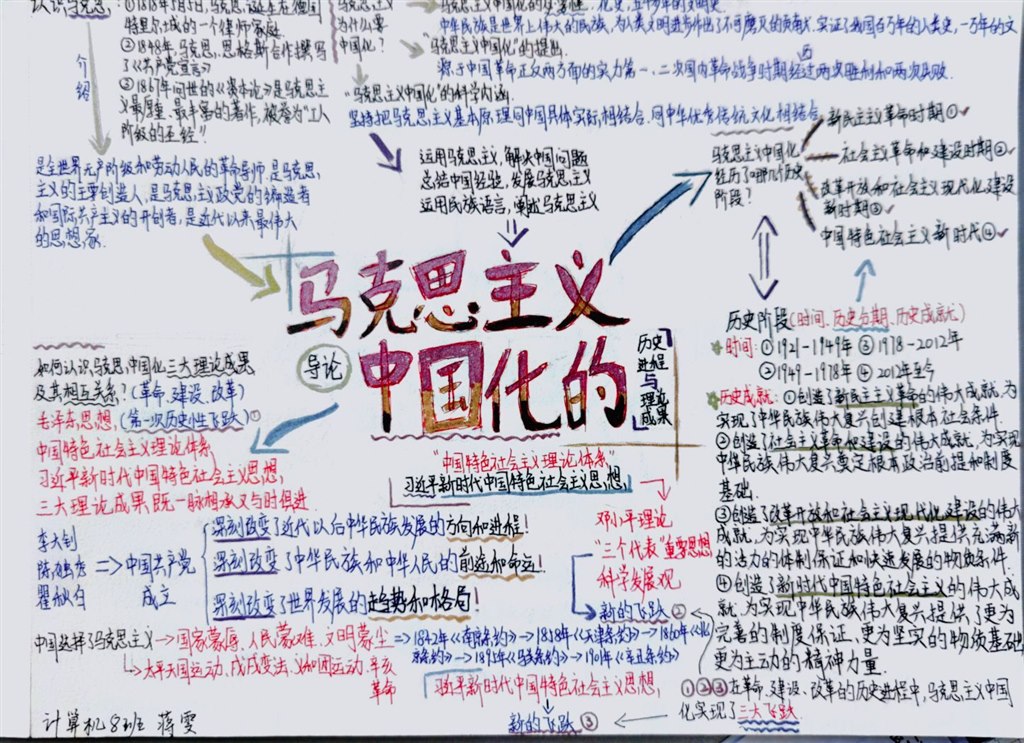 认识马克思:①1818年5月5日,马克思诞生在德国
特里尔城的一个律师家庭.
②1848年,马克思、恩格斯合作撰写
了《共产党宣言》
③1867年问世的《资本论》是马克思主
义最厚重、最丰富的著作,被誉为"工人
阶级的圣经"!
介绍
是全世界无产阶级和劳动人民的革命导师,是马克思
主义的主要创始人,是马克思主义政党的缔造者
和国际共产主义的开创者,是近代以来最伟大
的思想家.
马克思主义
为什么要
中国化?
中华民族是世界上伟大的民族,为人类文明进步作出了不可磨灭的贡献,实证了我国百万年的人类史,一万年的文
"马克思主义中国化"的提出.
源于中国革命正反两方面的实力第一、二次国内革命战争时期经过两次胜利和两次失败.
历
"马克思主义中国化"的科学内涵.
坚持把马克思主义基本原理同中国具体实际相结合、同中华优秀传统文化相结合.
运用马克思主义,解决中国问题
总结中国经验,发展马克思主义
运用民族语言,阐述马克思主义
马克思主义中国化
经历了哪几个历史
阶段?
新民主主义革命时期①
社会主义革命和建设时期②
改革开放和社会主义现代化建设
新时期③
中国特色社会主义新时代④
马克思主义
中国化的
导论
历史进程与理论成果
历史阶段(时间、历史分期、历史成就)
时间:①1921-1949年 ③1978-2012年
②1949-1978年 ④2012年至今
历史成就:①创造了新民主主义革命的伟大成就,为
实现了中华民族伟大复兴创建根本社会条件.
②创造了社会主义革命和建设的伟大成就,为实现
中华民族伟大复兴奠定根本政治前提和制度
基础.
③创造了改革开放和社会主义现代化建设的伟大
成就,为实现中华民族伟大复兴提供充满新
的活力的体制保证和快速发展的物质条件.
④创造了新时代中国特色社会主义的伟大成
就,为实现中华民族伟大复兴提供了更为
完善的制度保证、更为坚实的物质基础
更为主动的精神力量.
①②③在革命、建设、改革的历史进程中,马克思主义中国
化实现了三大飞跃.
如何认识马克思中国化三大理论成果
及其相互关系?(革命、建设、改革)
毛泽东思想,(第一次历史性飞跃)①
中国特色社会主义理论体系
习近平新时代中国特色社会主义思想,
三大理论成果,既一脉相承又与时俱进.
"中国特色社会主义理论体系"
习近平新时代中国特色社会主义思想,
邓小平理论
"三个代表"重要思想
科学发展观
新的飞跃②
李大钊
陈独秀
瞿秋白
中国共产党
成立
深刻改变了近代以后中华民族发展的方向和进程!
深刻改变了中华民族和中华人民的前途和命运!
深刻改变了世界发展的走趋势和格局!
中国选择了马克思主义→国家蒙辱、人民蒙难、文明蒙尘⇒1842年《南京条约》→1858年《天津条约》→1860年《北
京条约》→1895年《马关条约》→1901年《辛丑条约》
太平天国运动、戊戌变法、义和团运动、辛亥
革命
习近平新时代中国特色社会主义思想,
新的飞跃③
计算机8班 蒋雯